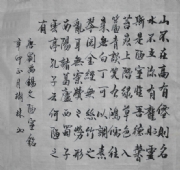 山不在高有仙则名
水不在深有龙则灵
斯是陋室惟吾德馨
苔痕上阶绿草色入
帘青谈笑有鸿儒往
来无白丁可以调素
琴阅金经无丝竹之
乱耳无案牍之劳形
南阳诸葛庐西蜀子
云亭孔子云何陋之
有
唐刘禹锡文陋室铭
辛卯正月